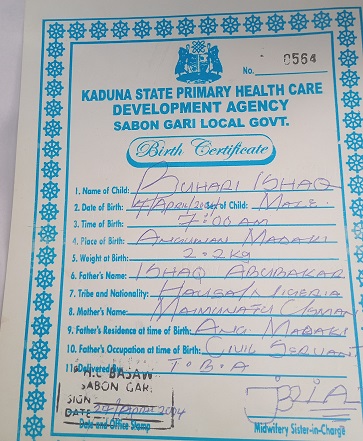 No. 0564
KADUNA STATE PRIMARY HEALTH CARE
DEVELOPMENT AGENCY
SABON GARI LOCAL GOVT.
Birth Certificate
1. Name of Child: BUHARI ISHAQ
2. Date of Birth: 4/APRIL/ Sex of Child: MALE
3. Time of Birth: 7:00 AM
4. Place of Birth: ANGUWAN MADAKI
5. Weight at Birth: 2.2kg
6. Father's Name: ISHAQ ABUBAKAR
7. Tribe and Nationality: HAUSA/NIGERIA
8. Mother's Name: MAIMUNATU USMAN
9. Father's Residence at time of Birth: ANG. MADAKI
10. Father's Occupation at time of Birth: CIVIL SERVANT
11. Delivered T.B.A
H.C BASAW
SABON GARI
SIGN
DATE 2004
Date and Office Stamp
Midwifery Sister-in-Charge